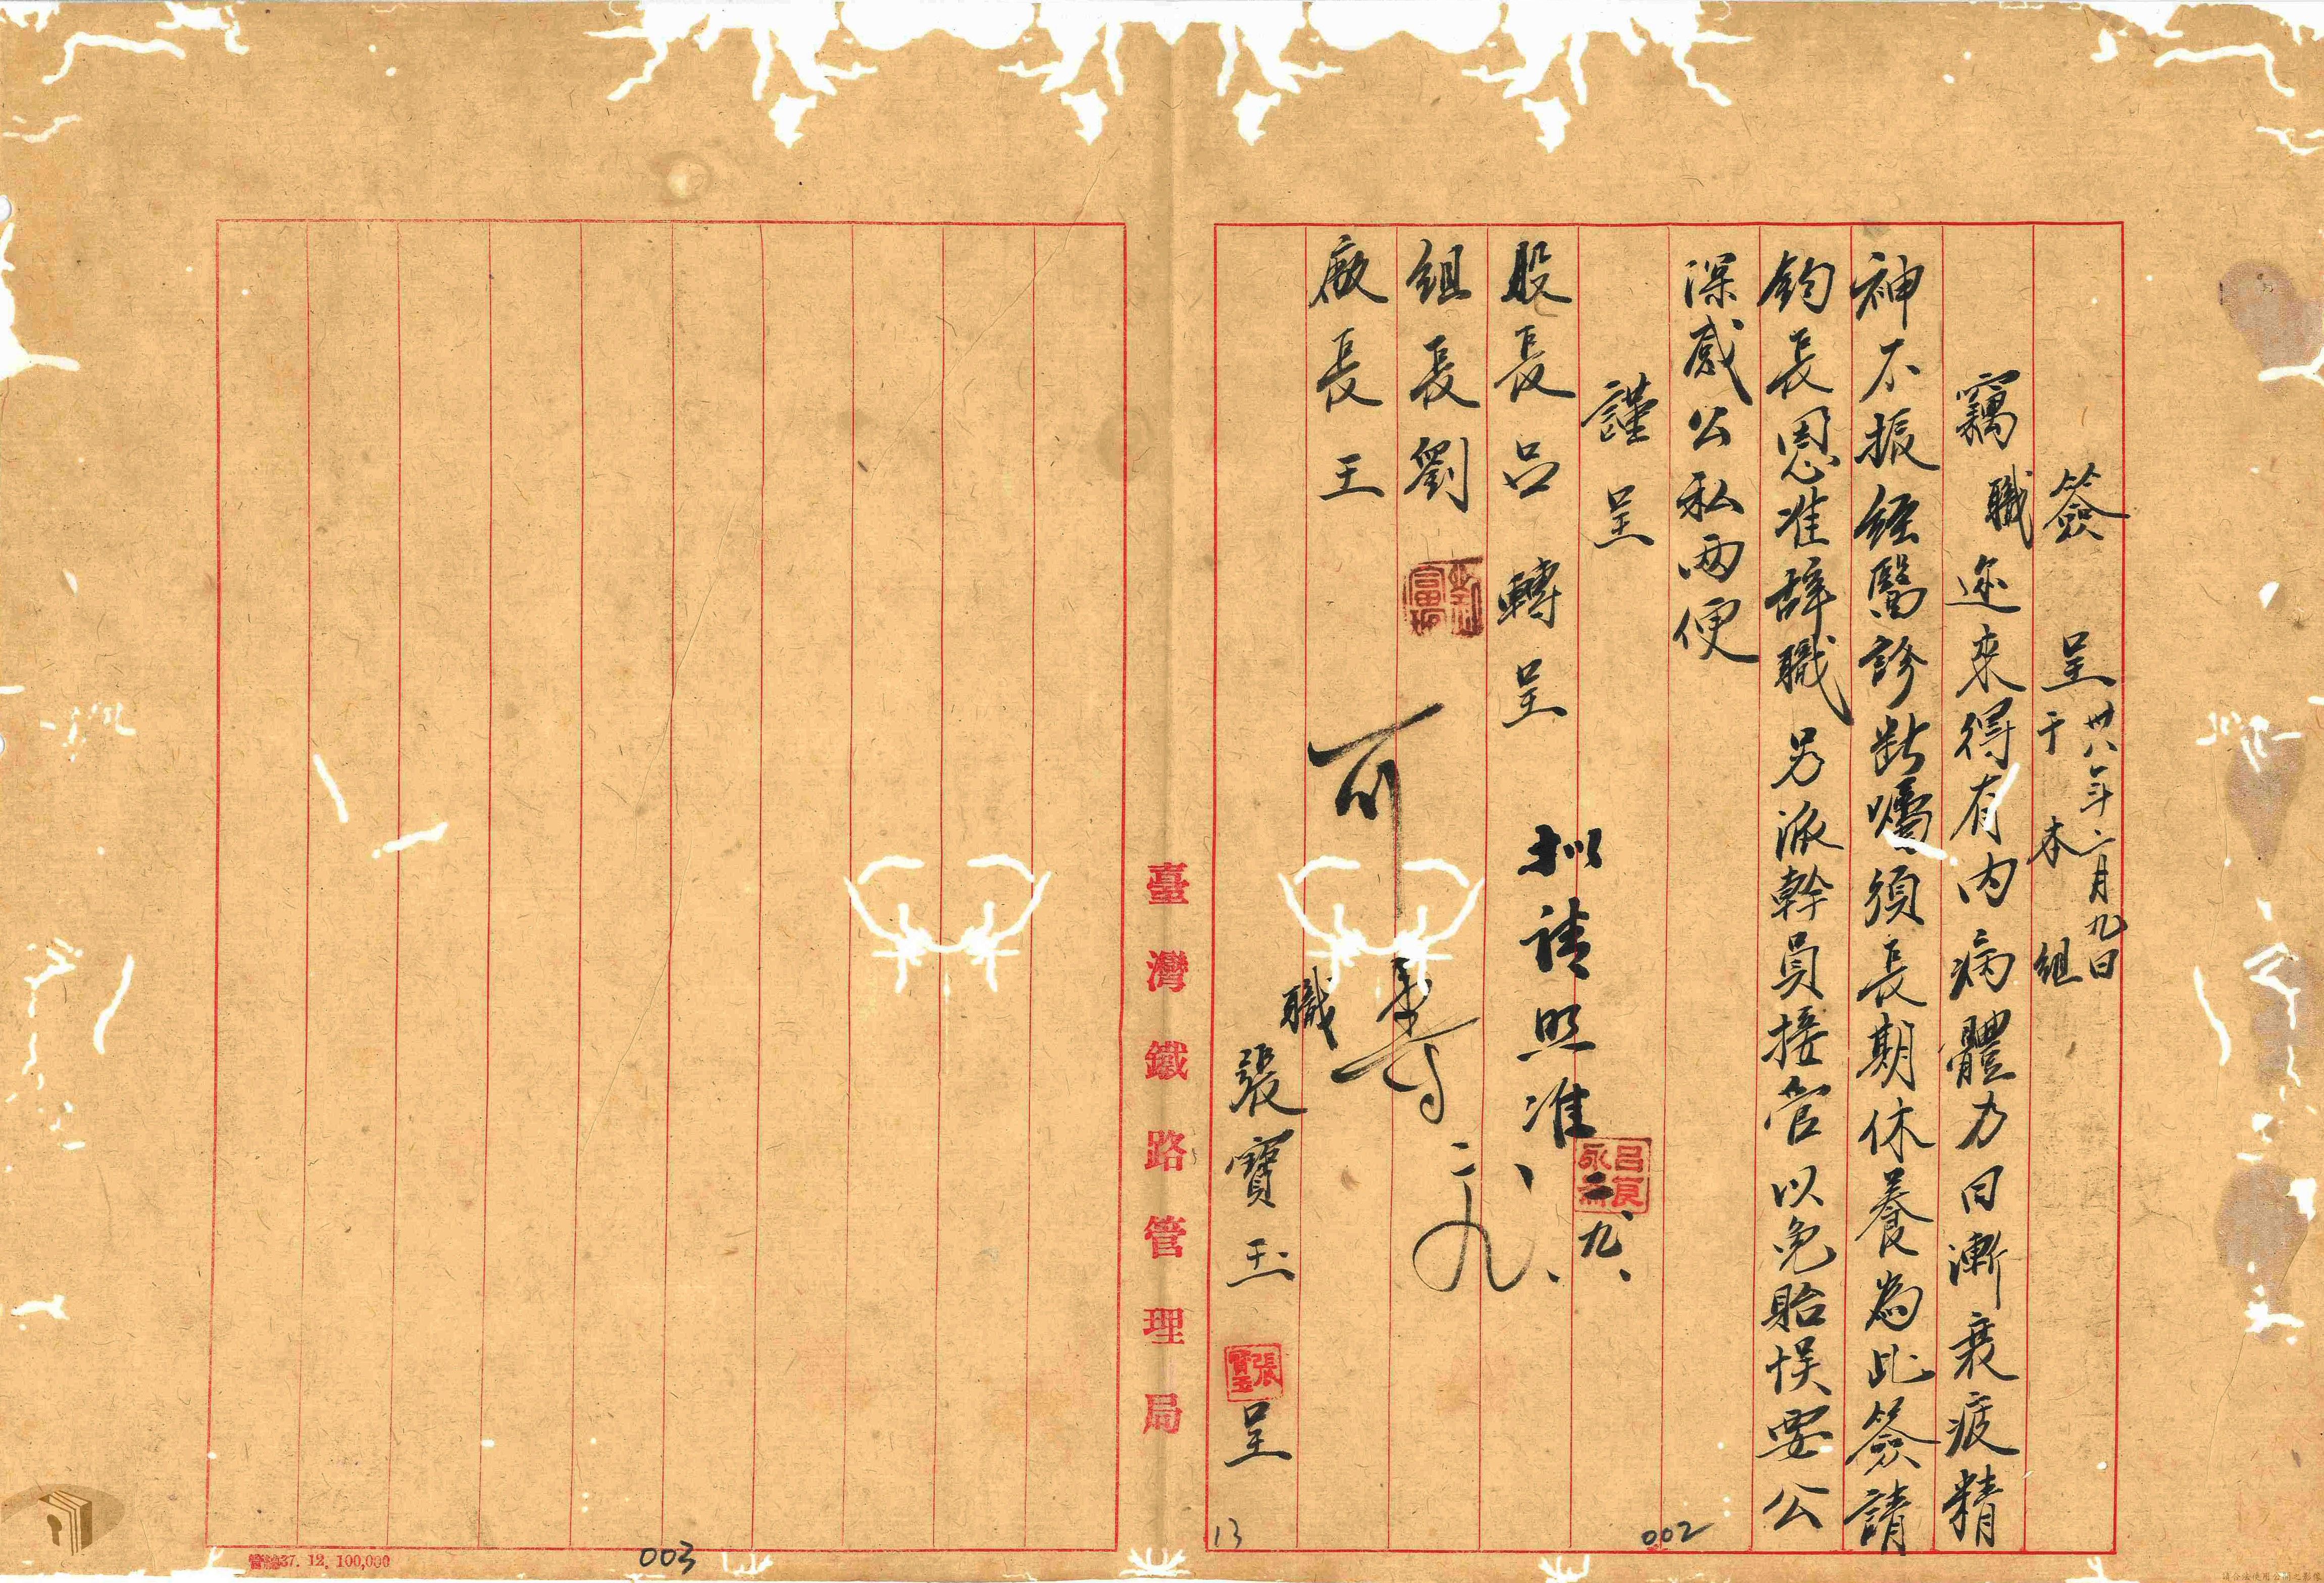 簽呈 卅八年二月九日
于本組
竊職近來得有內病體力日漸衰疲精
神不振經醫診斷囑須長期休養為此簽請
鈞長恩准辞職另派幹員接管以免貽悞要公
深感公私両便
謹呈
股長呂轉呈
組長劉
廠長王
擬請照准、
呂良
二、九、
可
二九、
職張寶玉呈
張寶玉
臺灣鐵路管理局
13
002
003
37. 12. 100,000